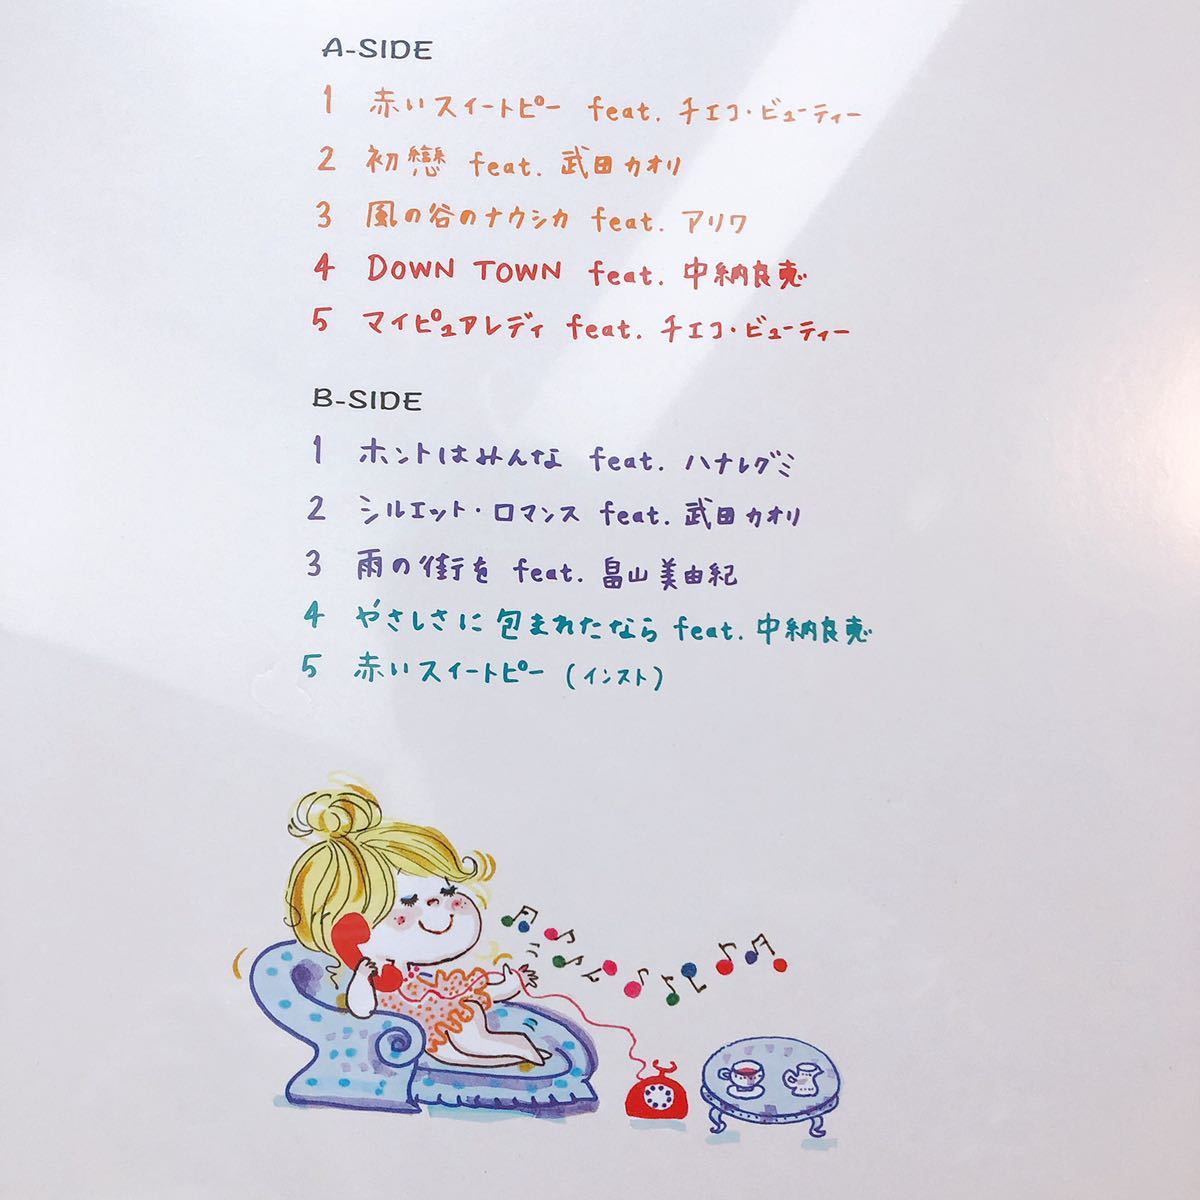 A-SIDE
1 赤いスイートピー feat. チエコ・ビューティー
2 初戀 feat. 武田カオリ
3 風の谷のナウシカ feat. アリワ
4 DOWN TOWN feat. 中納良恵
5 マイピュアレディ feat. チエコ・ビューティー
B-SIDE
1 ホントはみんな feat. ハナレグミ
2 シルエット・ロマンス feat. 武田カオリ
3 雨の街を feat. 畠山美由紀
4 やさしさに包まれたなら feat. 中納良恵
5 赤いスイートピー (インスト)